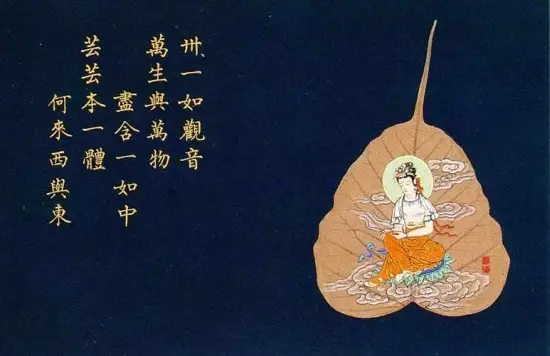 卅一如觀音
萬生與萬物
盡含一如中
芸芸本一體
何來西與東